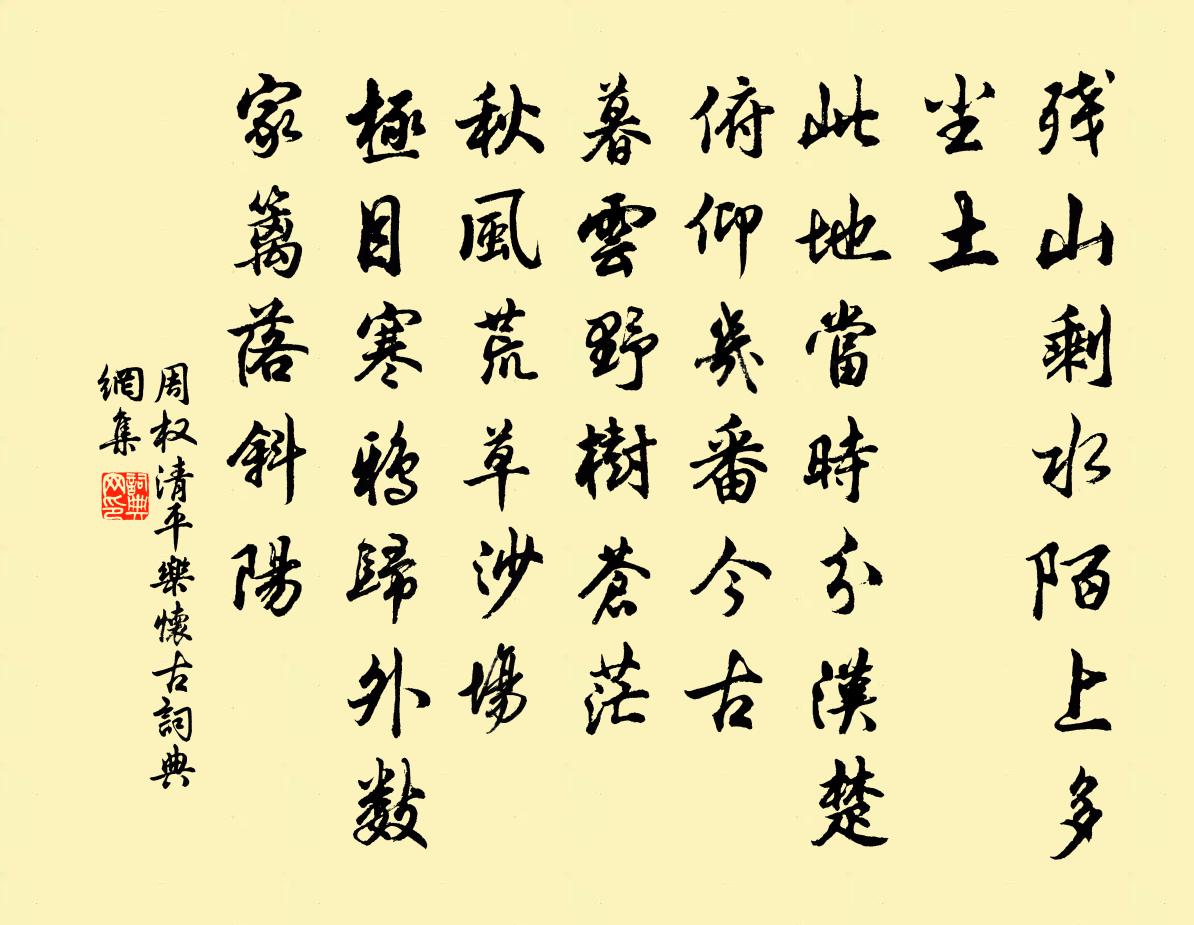 残山剩水陌上多
尘土
此地當時分漢楚
俯仰幾番今古
暮雲野樹蒼茫
秋風荒草沙場
極目寒鴉歸外数
家篱落斜陽
周权清平樂懷古詞典
網集
詞典網印